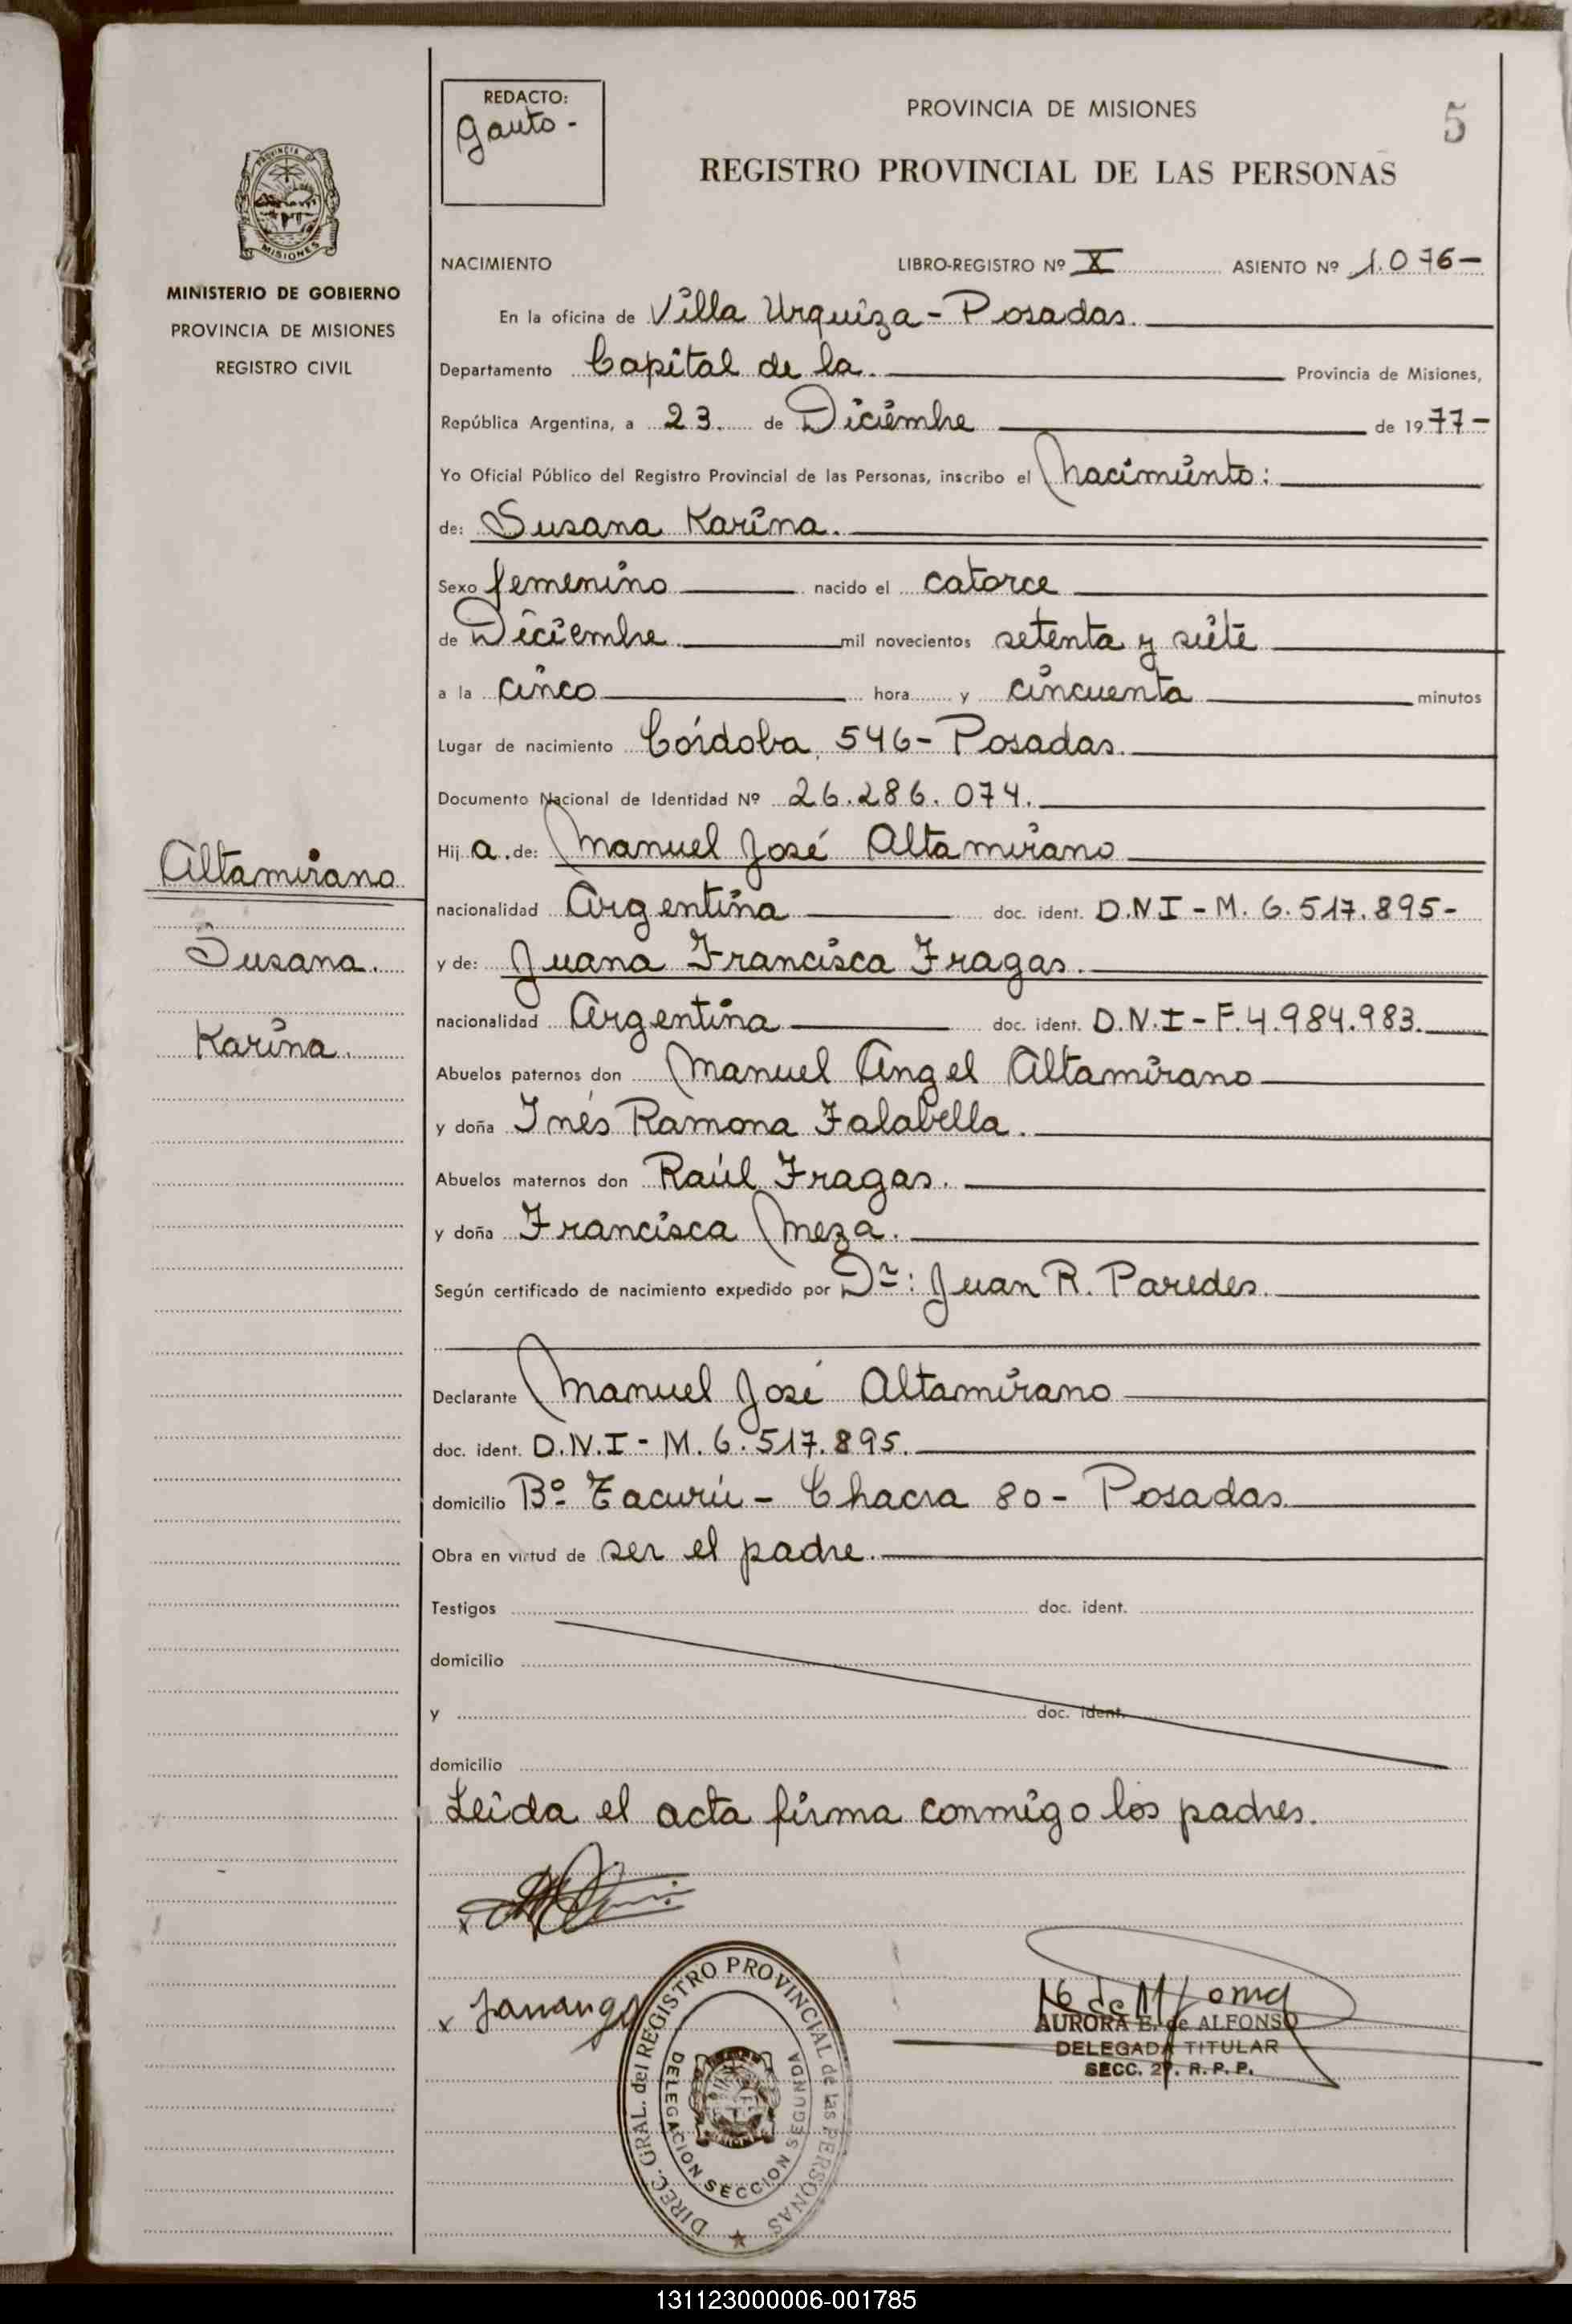 REDACTO:
Gauto -
PROVINCIA DE MISIONES
5
REGISTRO PROVINCIAL DE LAS PERSONAS
PROVINCIA DE
MISIONES
MINISTERIO DE GOBIERNO
PROVINCIA DE MISIONES
REGISTRO CIVIL
NACIMIENTO LIBRO-REGISTRO Nº X ASIENTO Nº 1.076-
En la oficina de Villa Urquiza - Posadas.
Departamento Capital de la. Provincia de Misiones,
República Argentina, a 23. de Diciembre de 1977-
Yo Oficial Público del Registro Provincial de las Personas, inscribo el Nacimiento:
de: Susana Karina.
Sexo femenino nacido el catorce
de Diciembre. mil novecientos setenta y siete
a la cinco hora y cincuenta minutos
Lugar de nacimiento Córdoba 546- Posadas.
Documento Nacional de Identidad Nº 26.286.074.
Hij a. de: Manuel José Altamirano
nacionalidad Argentina doc. ident. D.N.I - M. 6.517.895-
y de: Juana Francisca Fragas.
nacionalidad Argentina doc. ident. D.N.I - F. 4.984.983.
Abuelos paternos don Manuel Angel Altamirano
y doña Inés Ramona Falabella.
Abuelos maternos don Raúl Fragas.
y doña Francisca Meza.
Según certificado de nacimiento expedido por Dr: Juan R. Paredes.
Declarante Manuel José Altamirano
doc. ident. D.N.I - M. 6.517.895.
domicilio Bº Tacurú - Chacra 80- Posadas
Obra en virtud de ser el padre.
Testigos doc. ident.
domicilio
y doc. ident.
domicilio
Leida el acta firma conmigo los padres.
Altamirano
Susana.
Karina.
x
x
DIREC. GRAL. del REGISTRO PROVINCIAL de las PERSONAS
DELEGACION SECCION SEGUNDA
MISIONES
AURORA E. de ALFONSO
DELEGADA TITULAR
SECC. 2ª. R. P. P.
131123000006-001785